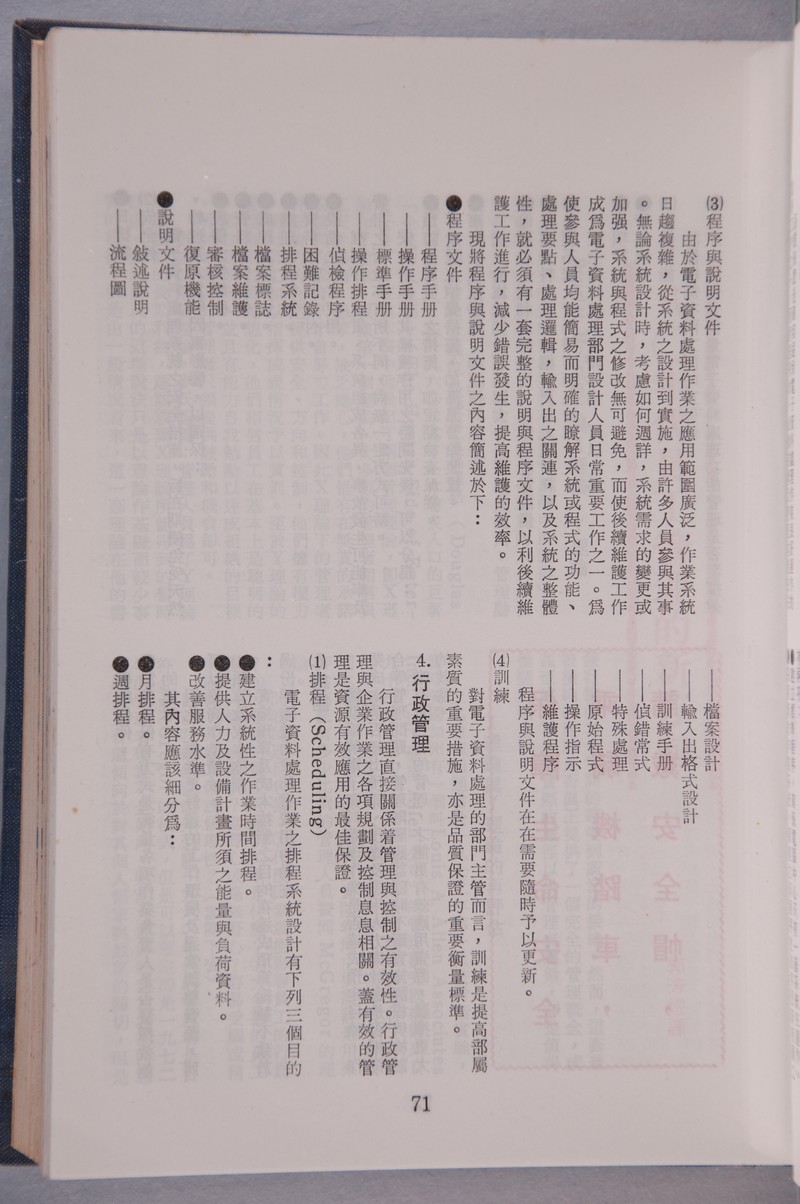 ⑶程序與說明文件
由於電子資料處理作業之應用範圍廣泛，作業系統
日趨複雜，從系統之設計到實施，由許多人員參與其事
。無論系統設計時，考慮如何週詳，系統需求的變更或
加强，系統與程式之修改無可避免，而使後續維護工作
成爲電子資料處理部門設計人員日常重要工作之一。爲
使參與人員均能簡易而明確的瞭解系統或程式的功能、
處理要點、處理邏輯，輸入出之關連，以及系統之整體
性，就必須有一套完整的說明與程序文件，以利後續維
護工作進行，減少錯誤發生，提高維護的效率。
現將程序與說明文件之內容簡述於下：
●程序文件
——程序手册
——操作手册
——標準手册
——操作排程
——偵檢程序
——困難記錄
——排程系統
——檔案標誌
——檔案維護
——審核控制
——復原機能
●說明文件
——敍述說明
——流程圖
——檔案設計
——輸入出格式設計
——訓練手册
——偵錯常式
——特殊處理
——原始程式
——操作指示
——維護程序
程序與說明文件在在需要隨時予以更新。
⑷訓練
對電子資料處理的部門主管而言，訓練是提高部屬
素質的重要措施，亦是品質保證的重要衡量標準。
4.行政管理
行政管理直接關係着管理與控制之有效性。行政管
理與企業作業之各項規劃及控制息息相關。蓋有效的管
理是資源有效應用的最佳保證。
⑴排程（Scheduling）
電子資料處理作業之排程系統設計有下列三個目的
：
●建立系統性之作業時間排程。
●提供人力及設備計畫所須之能量與負荷資料。
●改善服務水準。
其內容應該細分爲：
●月排程。
●週排程。
71